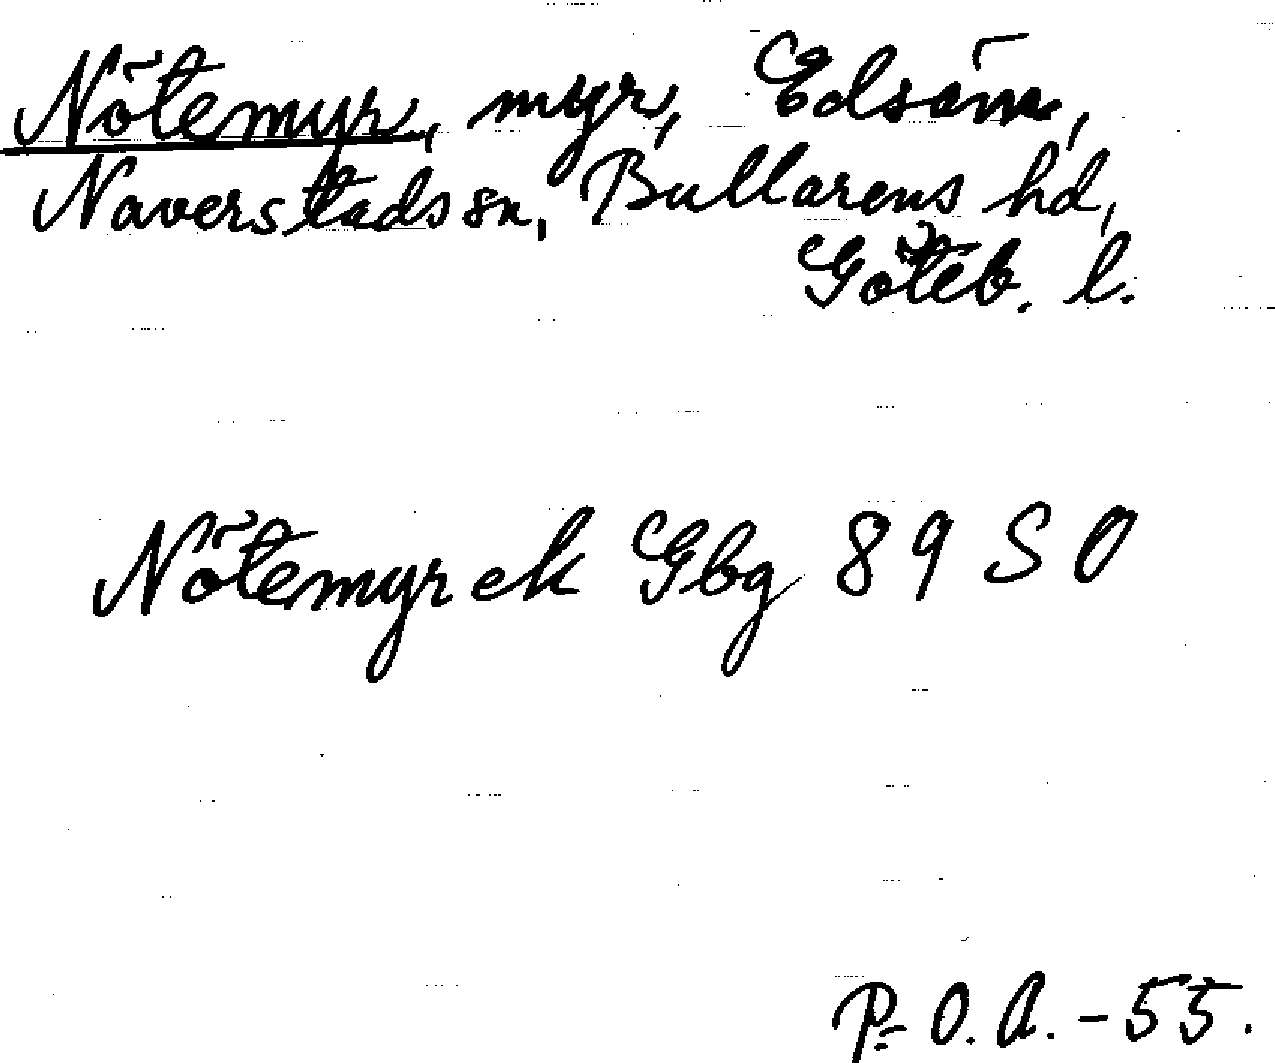 Nötemyr, myr, Edsäm,
Naverstads sn, Bullarens hd,
Göteb. l.
Nötemyr ek Gbg 89 SO
P-O.A.-55.